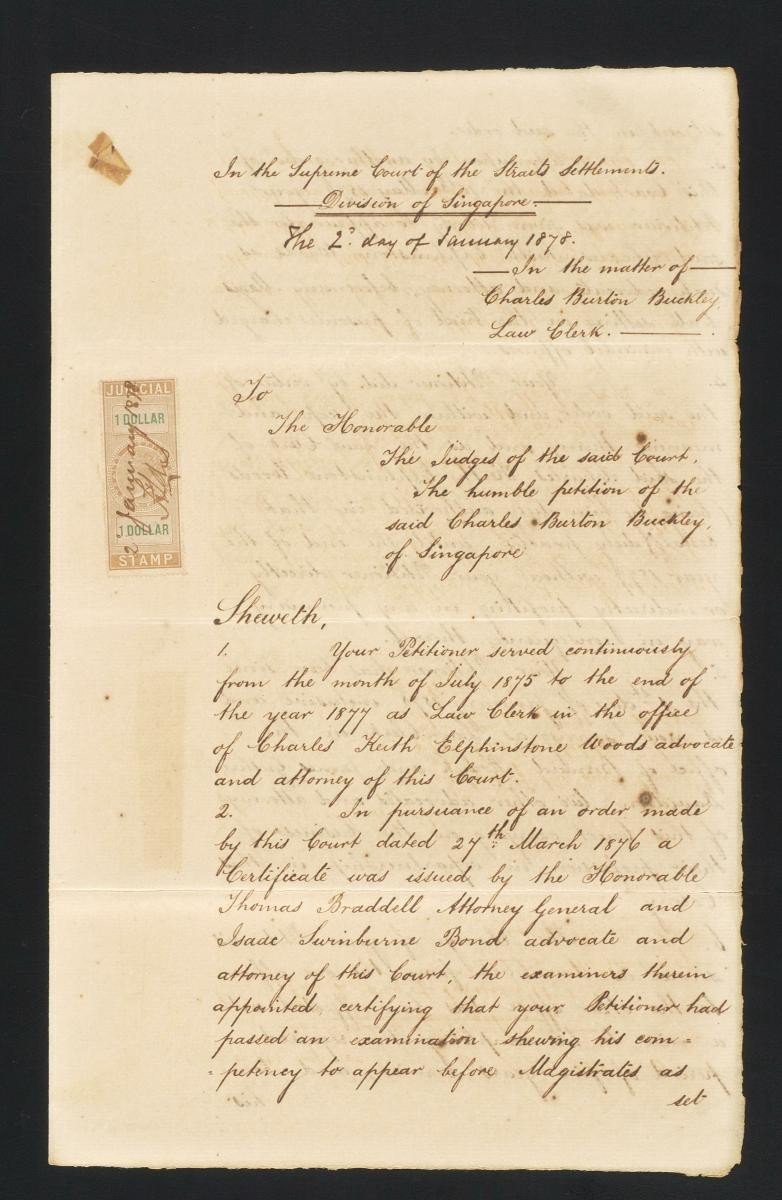 In the Supreme Court of the Straits Settlements.
Division of Singapore.
The 2d. day of January 1878.
In the matter of
Charles Burton Buckley,
Law Clerk.
To
The Honorable
The Judges of the said Court.
The humble petition of the
said Charles Burton Buckley,
of Singapore
JUDICIAL
1 DOLLAR
2 January 1878
1 DOLLAR
STAMP
Sheweth,
1. Your Petitioner served continuously
from the month of July 1875 to the end of
the year 1877 as Law Clerk in the office
of Charles Keith Elphinstone Woods advocate
and attorney of this Court.
2. In pursuance of an order made
by this Court dated 27th March 1876 a
Certificate was issued by the Honorable
Thomas Braddell Attorney General and
Isaac Swinburne Bond advocate and
attorney of this Court, the examiners therein
appointed, certifying that your Petitioner had
passed an examination shewing his com=
=petency to appear before Magistrates as
set